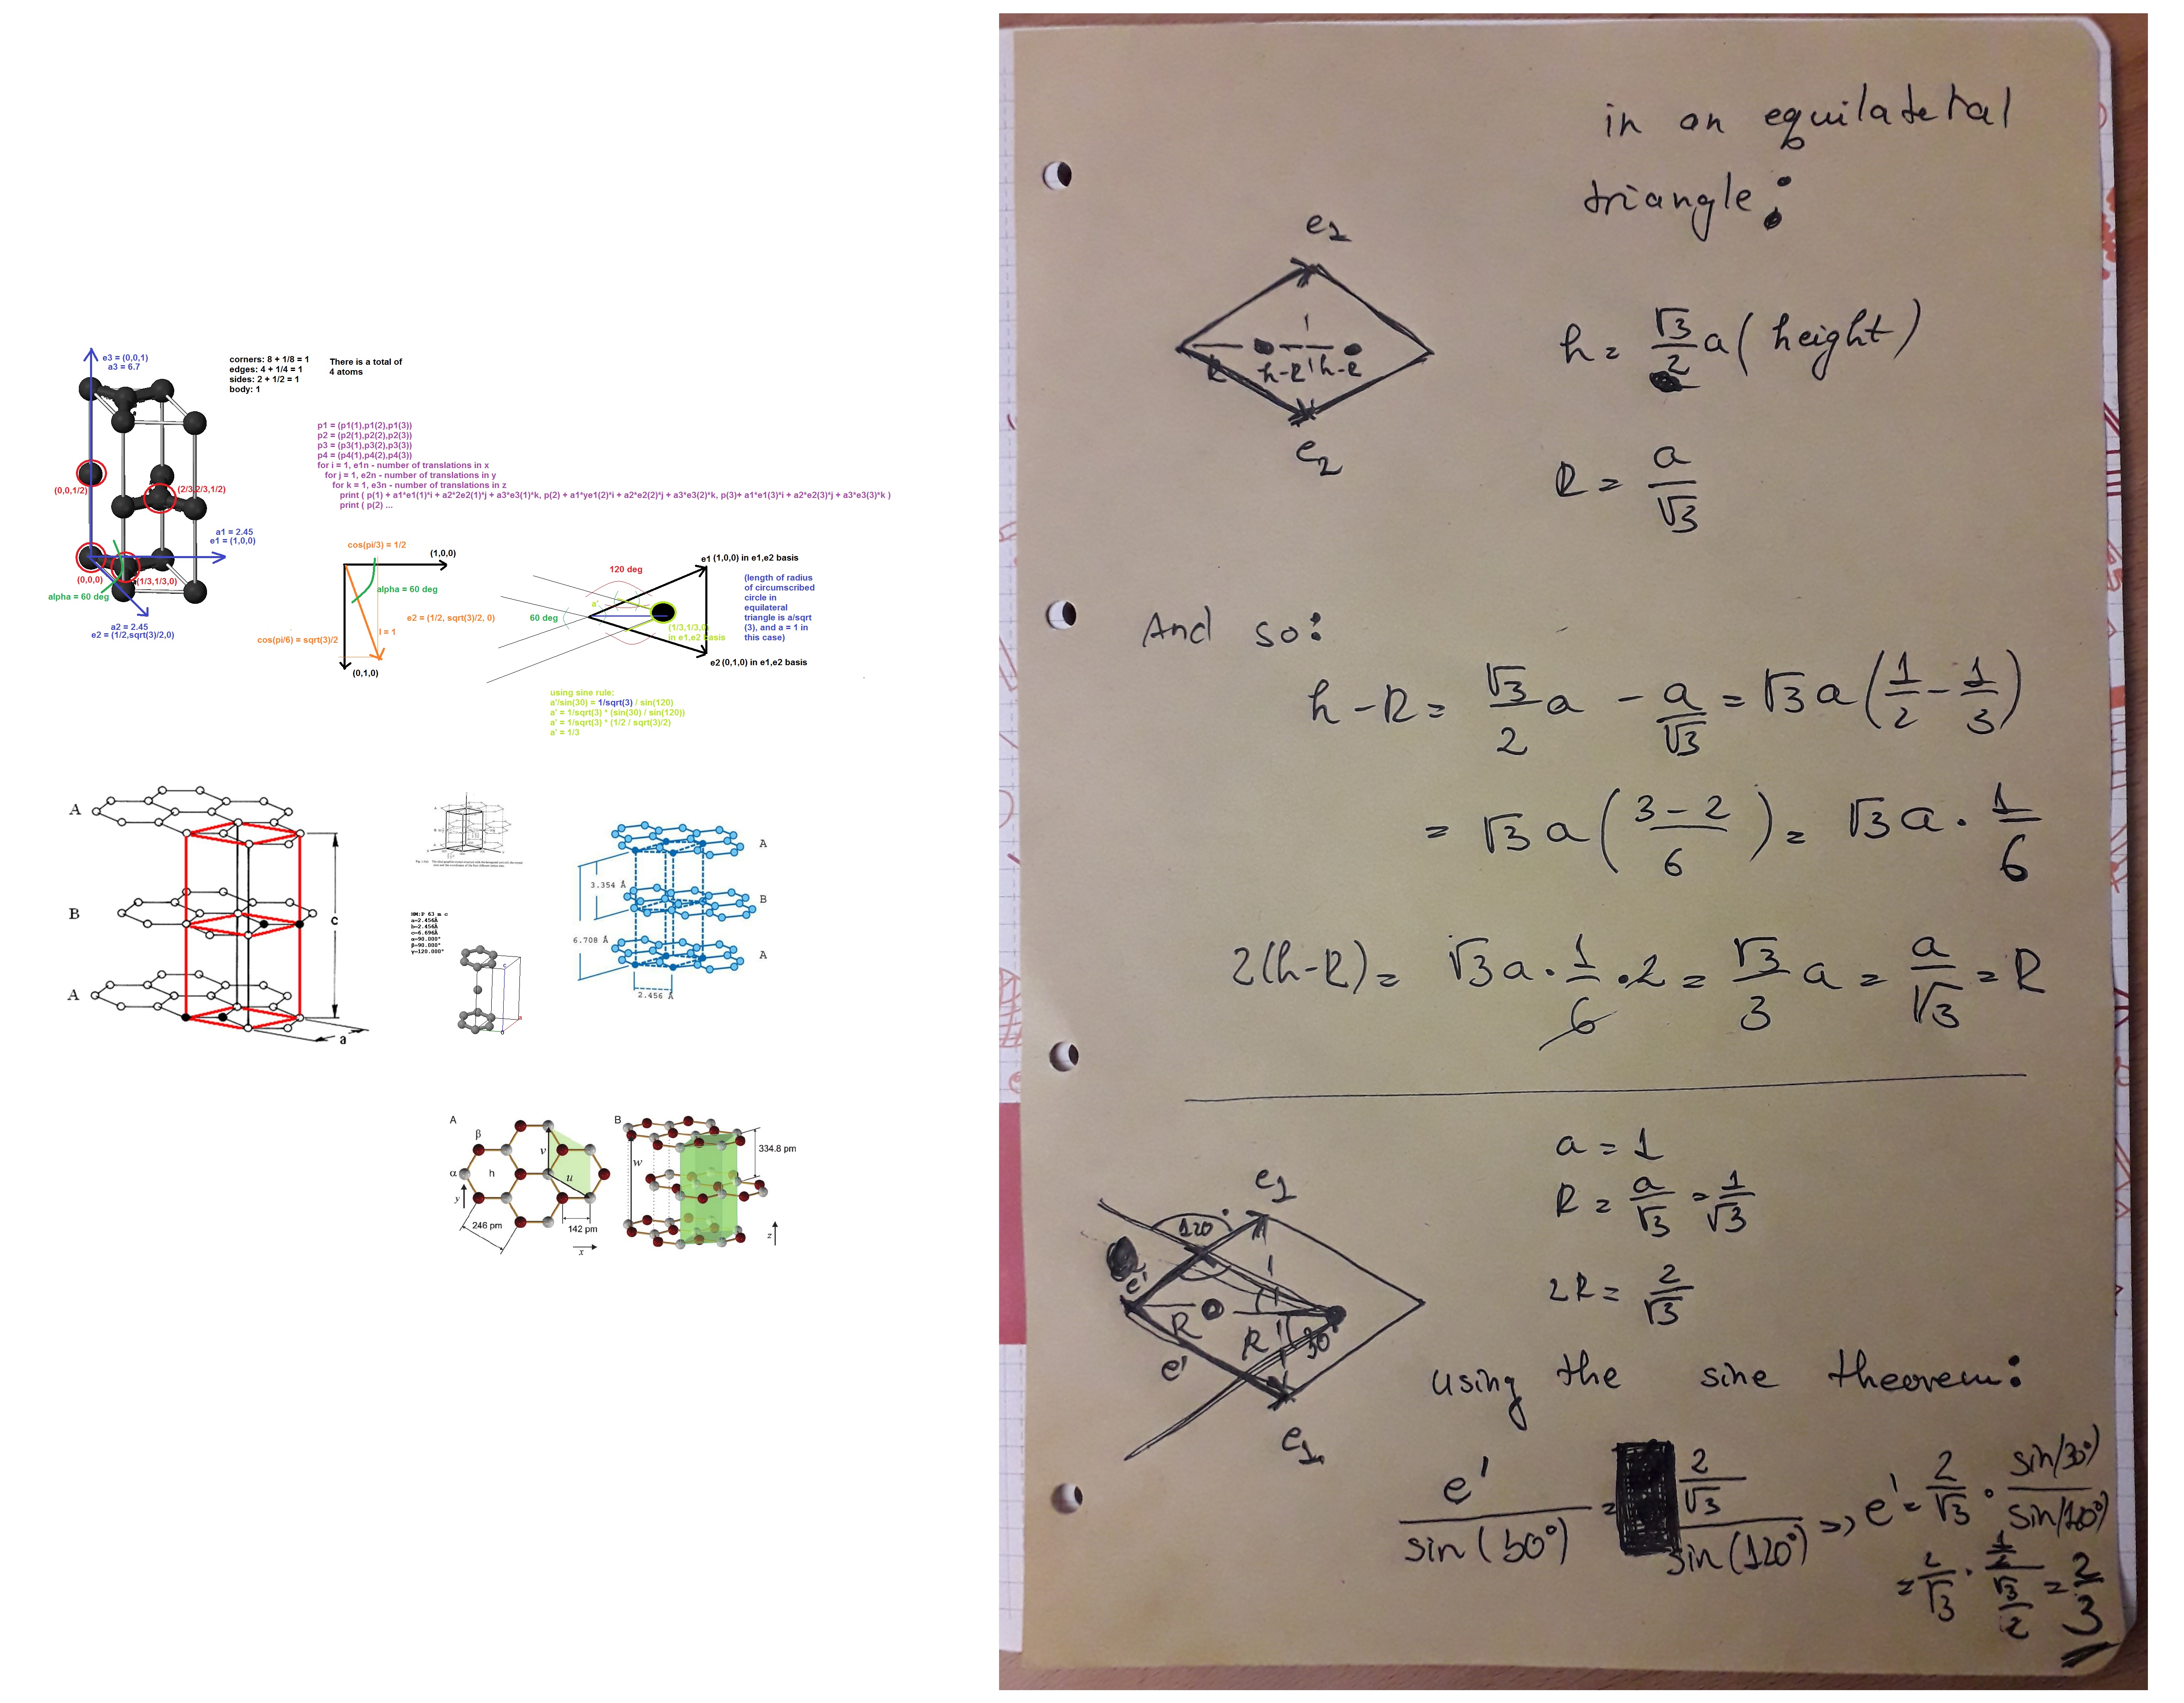 e3 = (0,0,1)
a3 = 6.7
corners: 8 + 1/8 = 1
edges: 4 + 1/4 = 1
sides: 2 + 1/2 = 1
body: 1
There is a total of
4 atoms
(0,0,1/2)
(2/3,2/3,1/2)
a1 = 2.45
e1 = (1,0,0)
(0,0,0)
(1/3,1/3,0)
alpha = 60 deg
a2 = 2.45
e2 = (1/2,sqrt(3)/2,0)
p1 = (p1(1),p1(2),p1(3))
p2 = (p2(1),p2(2),p2(3))
p3 = (p3(1),p3(2),p3(3))
p4 = (p4(1),p4(2),p4(3))
for i = 1, e1n - number of translations in x
for j = 1, e2n - number of translations in y
for k = 1, e3n - number of translations in z
print ( p(1) + a1*e1(1)*i + a2*2e2(1)*j + a3*e3(1)*k, p(2) + a1*ye1(2)*i + a2*e2(2)*j + a3*e3(2)*k, p(3)+ a1*e1(3)*i + a2*e2(3)*j + a3*e3(3)*k )
print ( p(2) ...
cos(pi/3) = 1/2
(1,0,0)
alpha = 60 deg
e2 = (1/2, sqrt(3)/2, 0)
l = 1
cos(pi/6) = sqrt(3)/2
(0,1,0)
120 deg
e1 (1,0,0) in e1,e2 basis
a'
60 deg
(1/3,1/3,0)
in e1,e2 basis
e2 (0,1,0) in e1,e2 basis
(length of radius
of circumscribed
circle in
equilateral
triangle is a/sqrt
(3), and a = 1 in
this case)
using sine rule:
a'/sin(30) = 1/sqrt(3) / sin(120)
a' = 1/sqrt(3) * (sin(30) / sin(120))
a' = 1/sqrt(3) * (1/2 / sqrt(3)/2)
a' = 1/3
A
B
A
c
a
HM:P 63 m c
a=2.456Å
b=2.456Å
c=6.696Å
α=90.000°
β=90.000°
γ=120.000°
3.354 Å
6.708 Å
2.456 Å
A
B
A
A
β
α
h
v
u
y
x
246 pm
142 pm
B
w
334.8 pm
z
in an equilateral
triangle:
e1
R h-R h-R
e2
h = √3/2 a (height)
R = a/√3
And so:
h - R = √3/2 a - a/√3 = √3 a (1/2 - 1/3)
= √3 a ((3-2)/6) = √3 a · 1/6
2(h-R) = √3 a · 1/6 · 2 = √3/3 a = a/√3 = R
a = 1
R = a/√3 = 1/√3
2R = 2/√3
e1
120°
e'
R R 30
e'
e1
using the sine theorem:
e'/sin(30°) = (2/√3)/sin(120°) => e' = 2/√3 · sin(30°)/sin(120°)
= 2/√3 · (1/2)/(√3/2) = 2/3